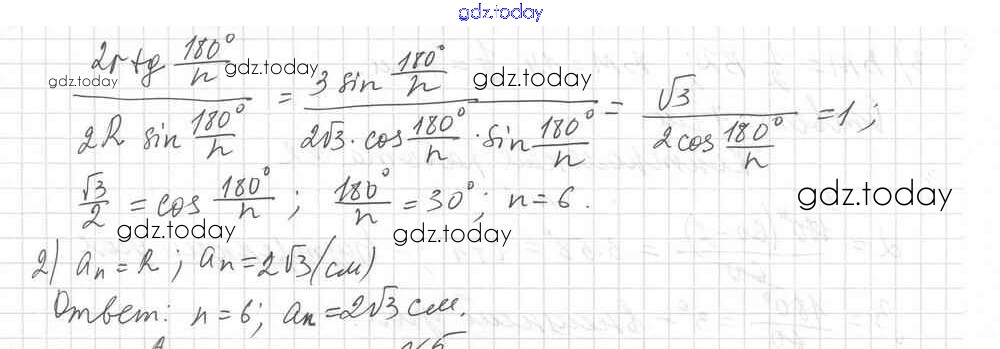 gdz.today
2r tg 180°/n / 2R sin 180°/n = 3 sin 180°/n / 2√3 · cos 180°/n · sin 180°/n = √3 / 2 cos 180°/n = 1;
gdz.today gdz.today gdz.today
√3/2 = cos 180°/n ; 180°/n = 30°; n = 6.
gdz.today
gdz.today gdz.today
2) aₙ = R ; aₙ = 2√3 (см)
Ответ: n = 6; aₙ = 2√3 см.